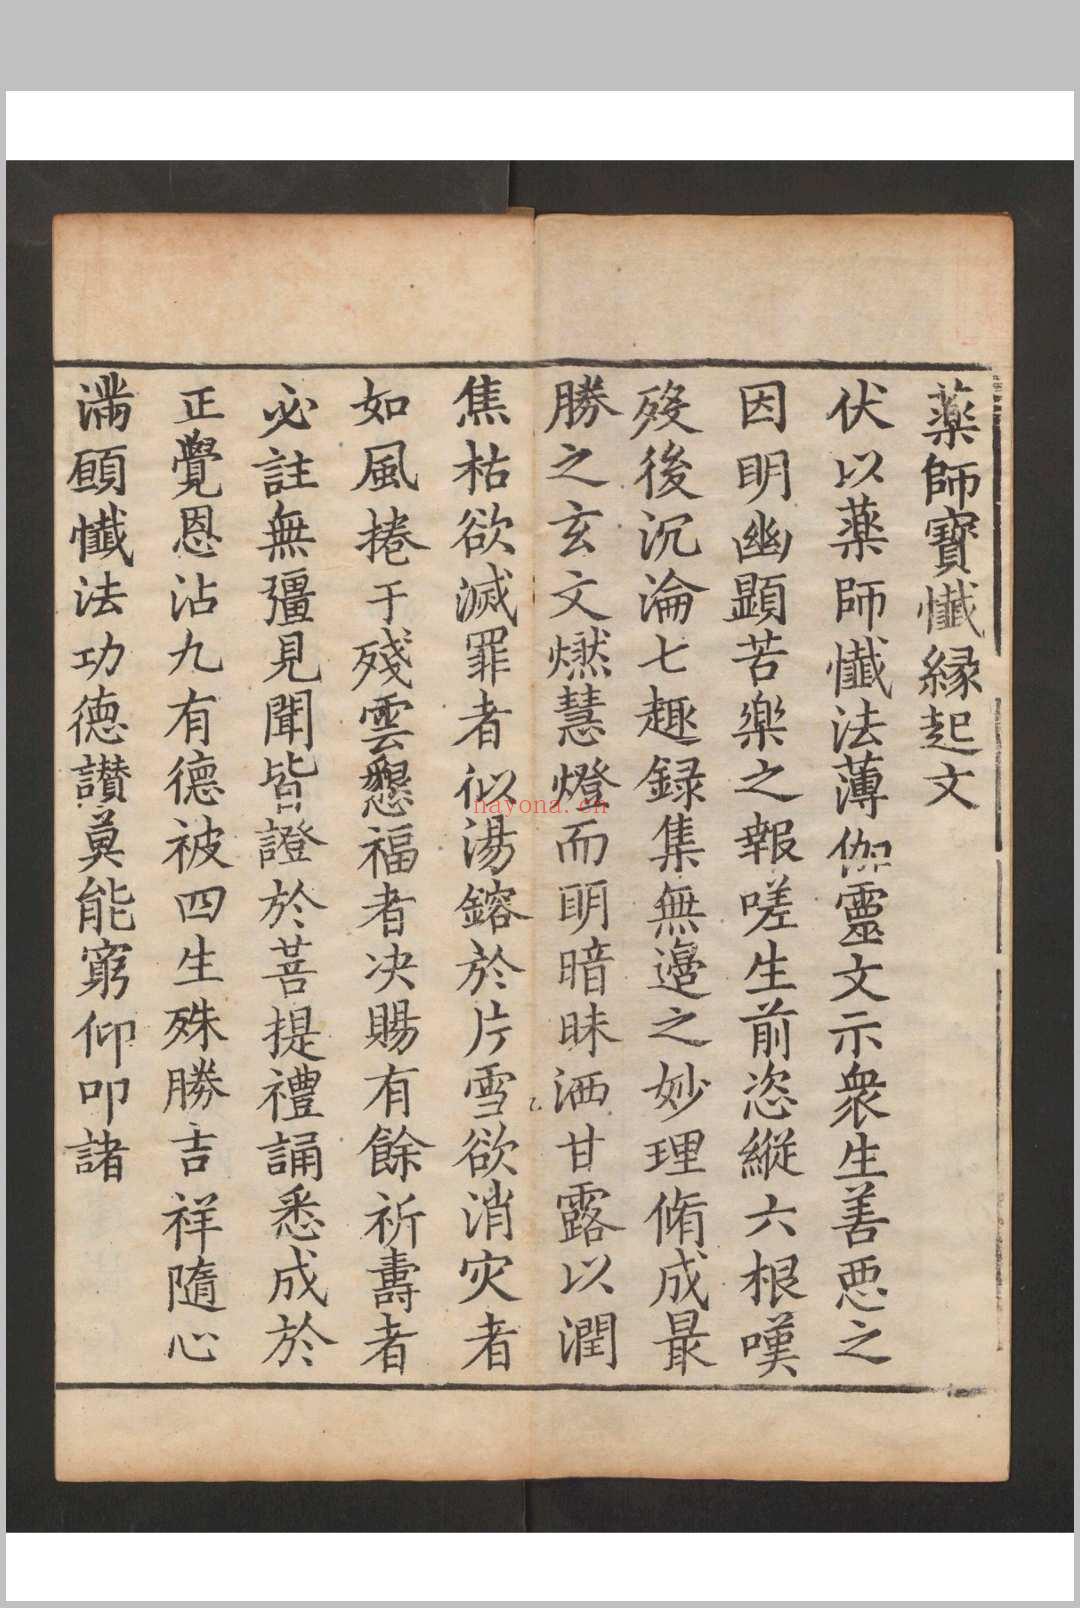 藥師寶懺緣起文
伏以藥師懺法薄伽靈文示衆生善惡之
因明幽顯苦樂之報嗟生前恣縱六根嘆
歿後沉淪七趣録集無邉之妙理脩成最
勝之玄文燃慧燈而明暗昧洒甘露以潤
焦枯欲滅罪者似湯鎔於片雪欲消灾者
如風捲于殘雲懇福者决賜有餘祈壽者
必註無彊見聞皆證於菩提禮誦悉成於
正覺恩沾九有德被四生殊勝吉祥隨心
滿願懺法功德讃莫能窮仰叩諸
nayona.cn